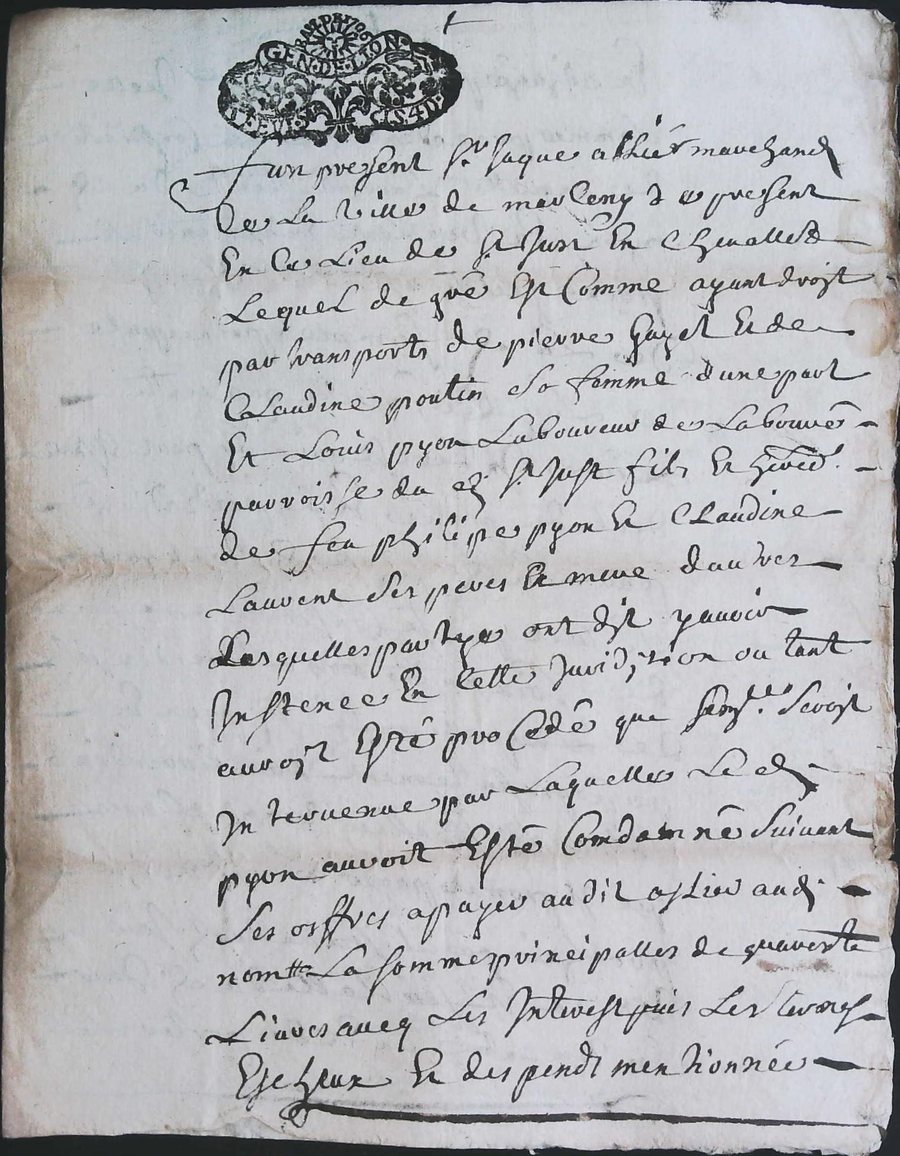 GEN·DE·LION
fun present Sr Jaque allier marchand
de La Ville de marCeny & a present
En Ce Lieu de St Just En Chevallet
Lequel de gré Est Comme ayant droist
par transports de pierre gayet Et de
Claudine poutin Sa femme d'une part
Et Louis pyon Laboureur de Labouré
parroisse du d St Just fils Et
de feu philipe pyon Et Claudine
Laurent Ses peres Et mere dautres
Lesquelles partyes ont dit y avoir
Instence En Cette Juridiction ou tant
auroit Esté proCedé que Seroist
Intervenue par Laquelle Le d
pyon auroit Esté Condamné Suivant
Ses offres a payer audit allier aud
nom La Somme principalle de quarente
Liuves aueq Les Interest puis Les termes
Escheux Et despends mentionnée